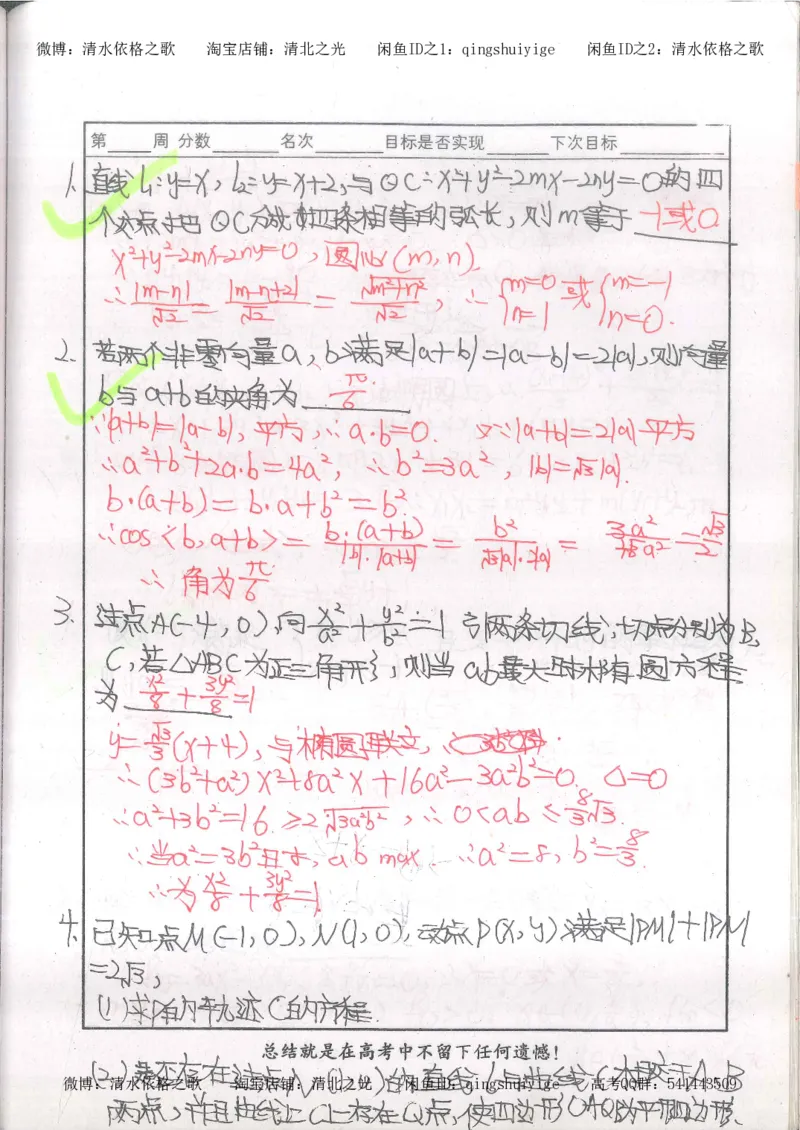 微博：清水依格之歌 淘宝店铺：清北之光 闲鱼ID之1：qingshuiyige 闲鱼ID之2：清水依格之歌
第 周 分数 名次 目标是否实现 下次目标
1. 直线l₁:y=x, l₂:y=x+2, 与⊙C:x²+y²-2mx-2ny=0的四
个交点把⊙C分成四条相等的弧长, 则m等于 -1或0
x²+y²-2mx-2ny=0, 圆心(m,n)
∴|m-n|/√2 = |m-n+2|/√2 = √m²+n²/√2, ∴{m=0 n=1 或{m=-1 n=0.
2. 若两个非零向量a,b满足|a+b|=|a-b|=2|a|, 则向量
b与a+b的夹角为 π/6
∵|a+b|=|a-b|, 平方, ∴a·b=0. 又∵|a+b|=2|a|平方
∴a²+b²+2a·b=4a², ∴b²=3a², |b|=√3|a|.
b·(a+b)=b·a+b²=b²
∴cos<b,a+b>= b·(a+b)/|b|·|a+b| = b²/√3|a|·2|a| = 3a²/2√3a² = √3/2
∴角为π/6
3. 过点A(-4,0)向x²/a²+y²/b²=1引两条切线, 切点分别为B,
C, 若△ABC为正三角形, 则当ab最大时椭圆方程
为 x²/8+3y²/8=1
y=√3/3(x+4), 与椭圆联立,
∴(3b²+a²)x²+8a²x+16a²-3a²b²=0. △=0
∴a²+3b²=16≥2√3a²b², ∴0<ab≤8/3√3.
∴当a²=3b²时, ab max, ∴a²=8, b²=8/3.
∴为x²/8+3y²/8=1
4. 已知点M(-1,0), N(1,0), 动点P(x,y)满足|PM|+|PN|
=2√3,
(1)求P的轨迹C的方程.
总结就是在高考中不留下任何遗憾!
(2)是否存在过点N(1,0)的直线l与曲线C相交于A、B
微博：清水依格之歌 淘宝店铺：清北之光 闲鱼ID：qingshuiyige 高考QQ群：541443509
两点, 并且曲线C上存在Q点, 使四边形OAQB为平行四边形.